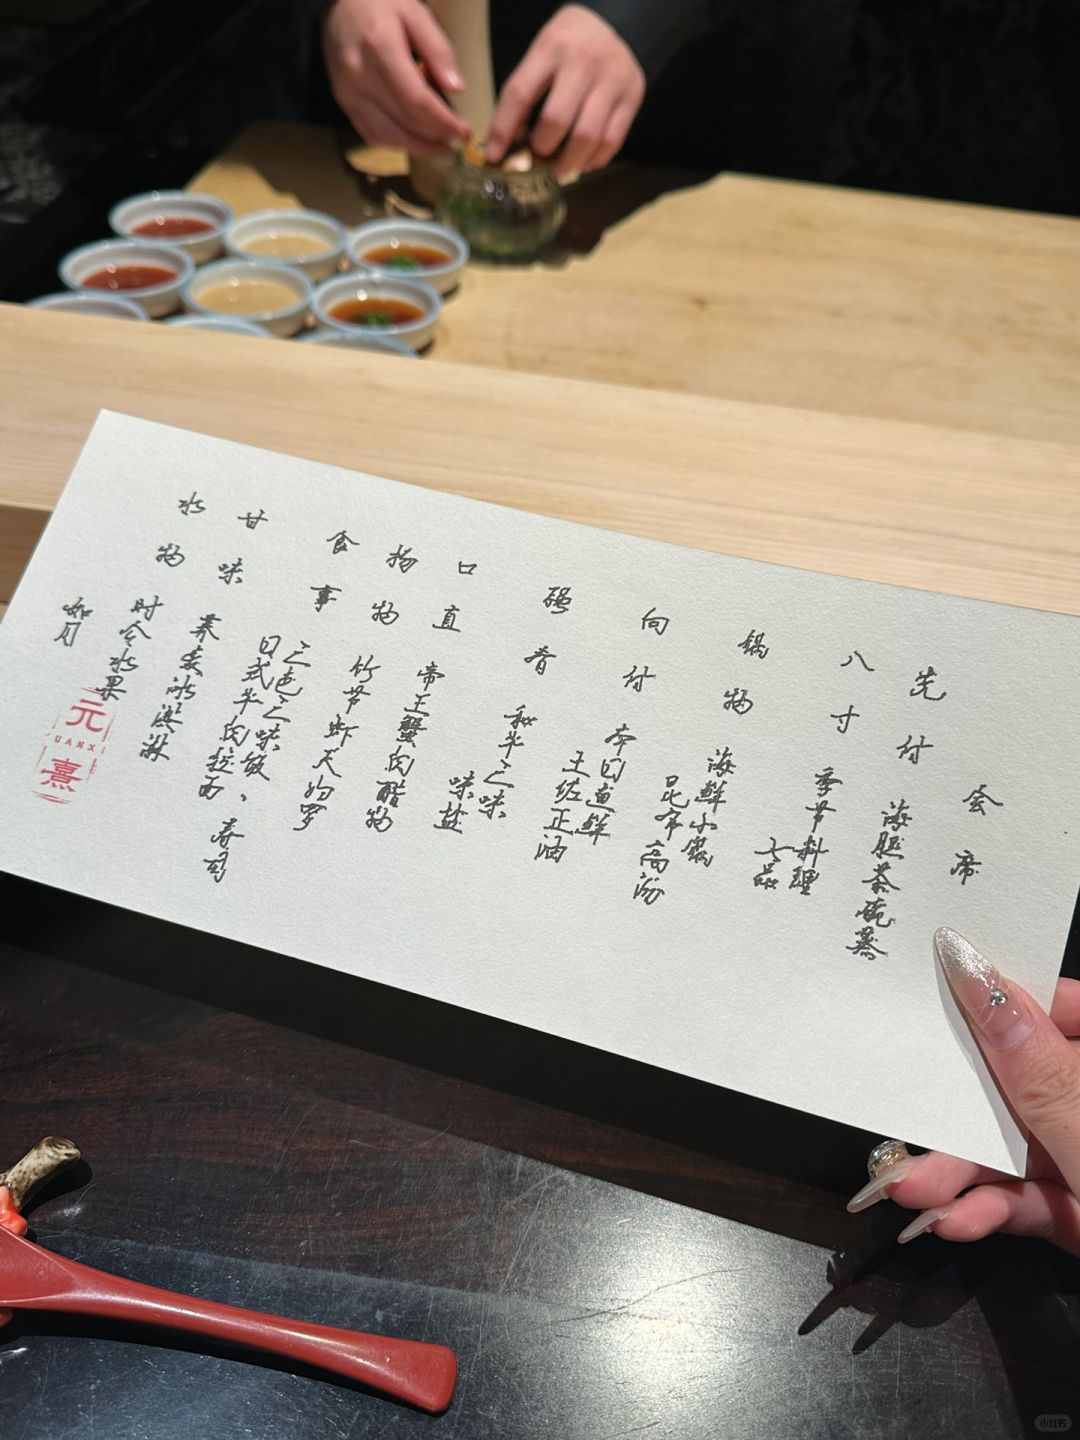 会席
先付 海胆茶碗蒸
八寸 季节料理
七品
锅物 海鲜小锅
昆布高汤
向付 本日鱼鲜
王佐正油
强肴 和牛之味
味盐
口直 帝王蟹肉醋物
扬物 竹节虾天妇罗
食事 三色三味饭、寿司
日式牛肉拉面
甘味 荞麦冰淇淋
水物 时令水果
如月
元
UANX
熹
小红书